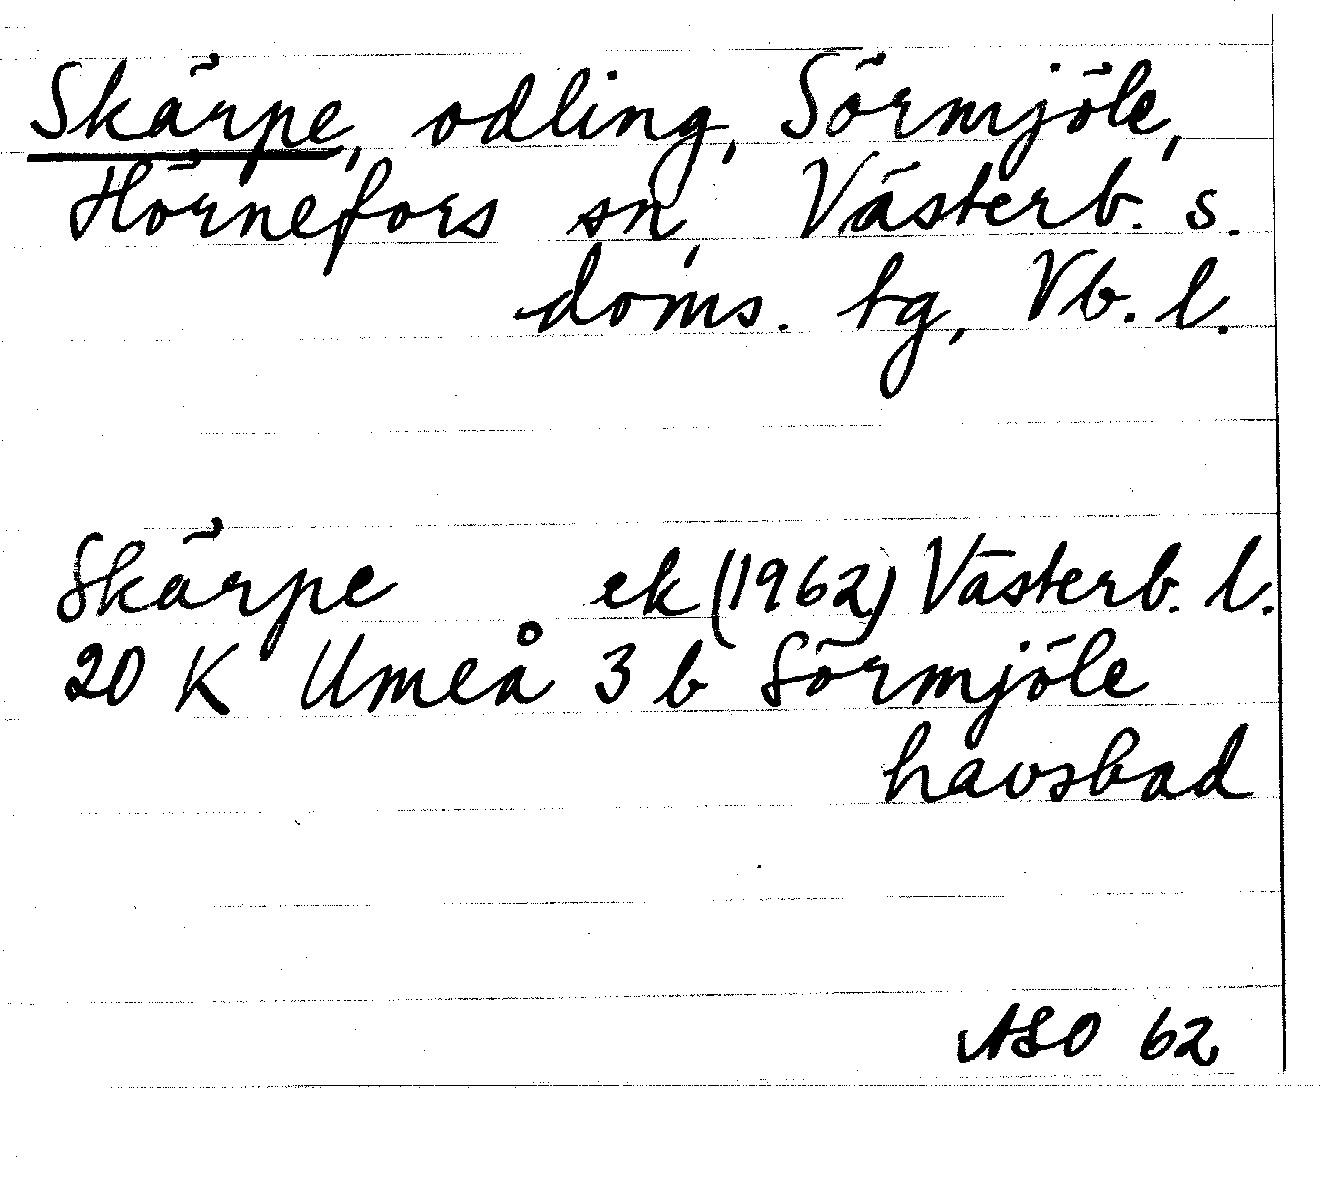 Skärpe, odling, Sörmjöle,
Hörnefors sn, Västerb. s.
doms. tg, Vb. l.
Skärpe ek (1962) Västerb. l.
20 K Umeå 3 b Sörmjöle
havsbad
ASO 62